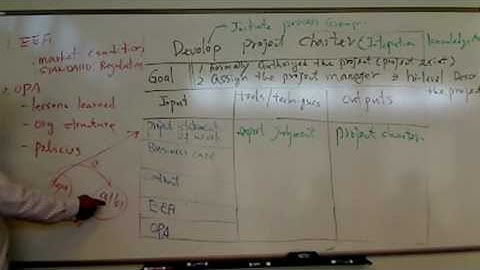 Initiate process Group
Develop project charter (Integration knowledge
1. EEF
- market condition
STANDARD Regulation
2. OPA
- lessons learned
- org structure
- policies
Goal
1 formally Authorized the project (project exist)
2 Assign the project manager & hi-level Descr
the project
Input
tools/techniques
outputs
project statement
of work
expert judgment
project charter
Business case
contract
EEF
OPA